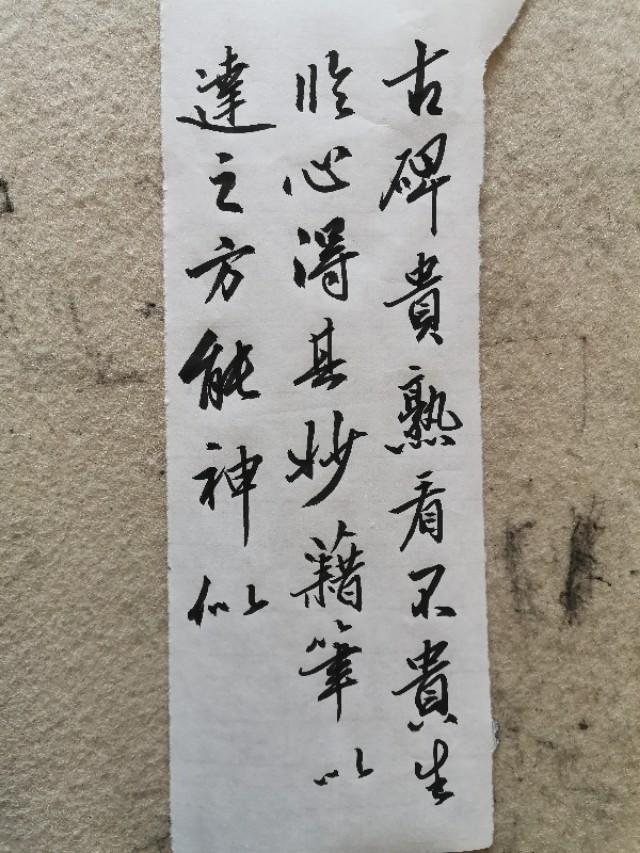 古碑貴熟看不貴生
臨心得其妙藉筆以
達之方能神似